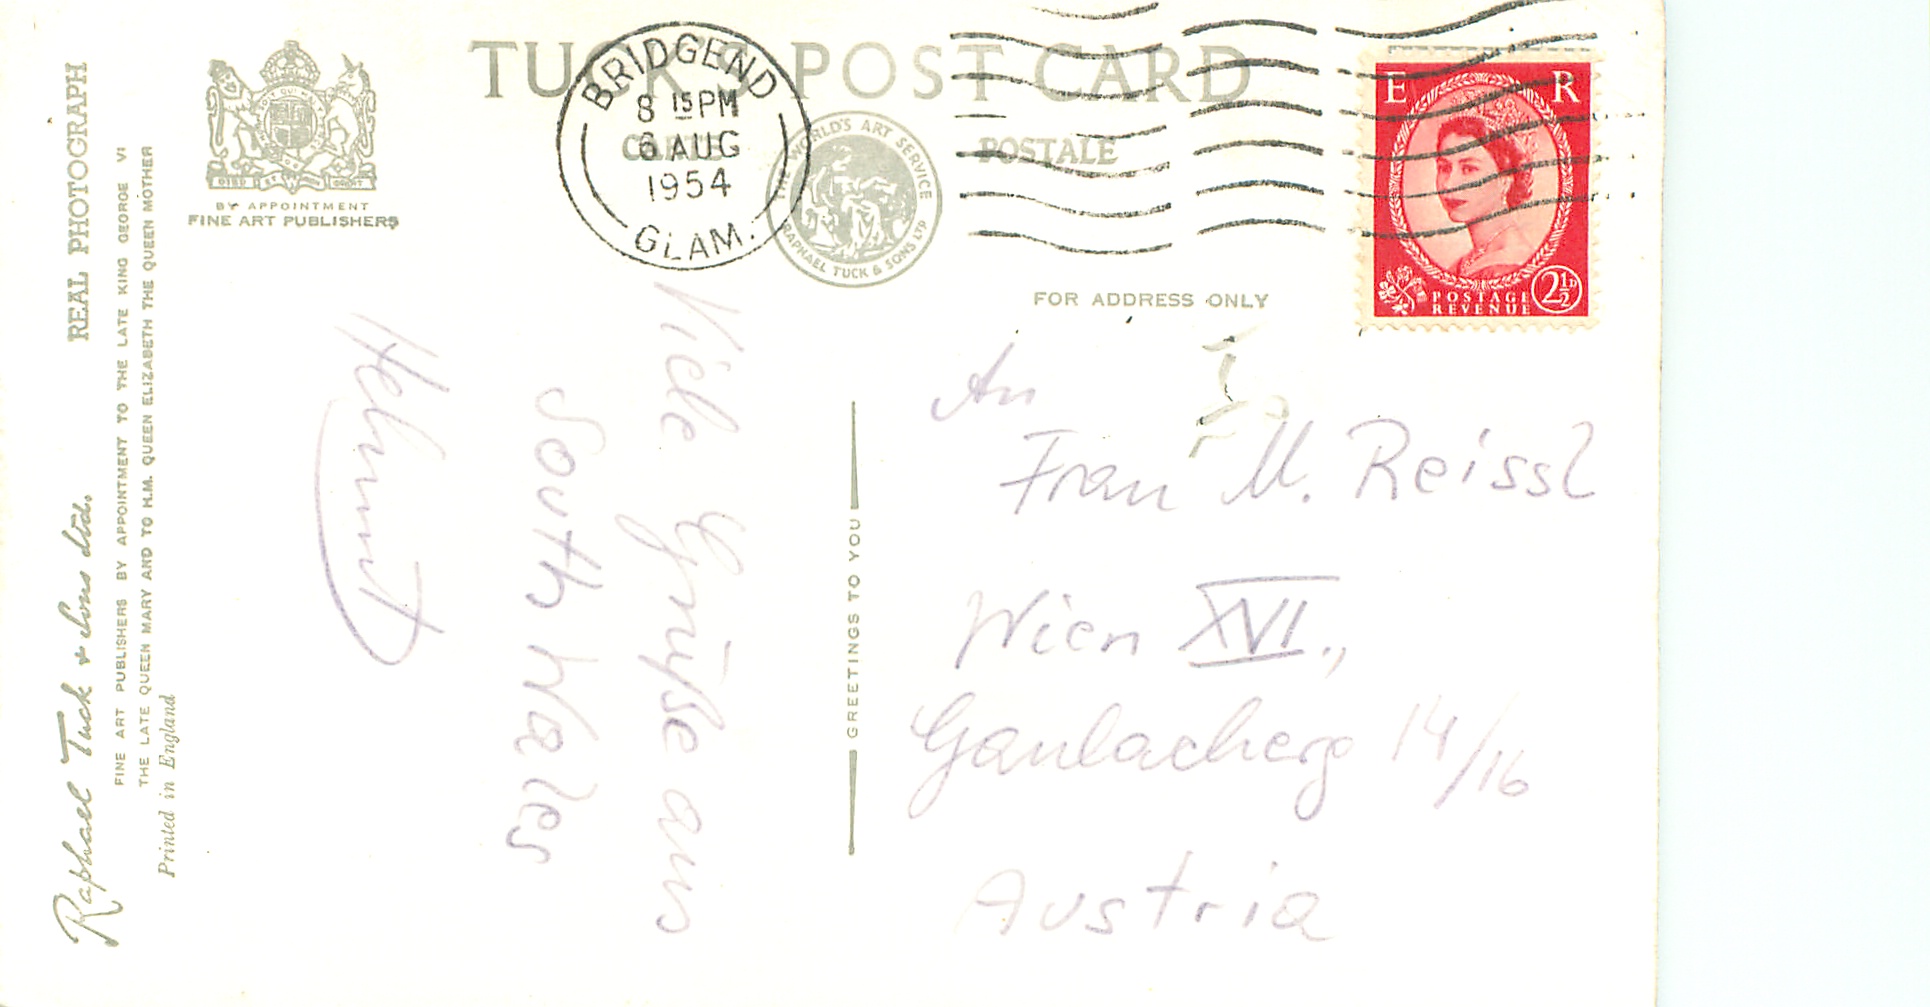 TUCK'S POST CARD
CARTE POSTALE
BRIDGEND
8 15 PM
6 AUG
1954
GLAM.
THE WORLD'S ART SERVICE
RAPHAEL TUCK & SONS LTD
E R
POSTAGE
REVENUE
2½D
DIEU ET MON DROIT
BY APPOINTMENT
FINE ART PUBLISHERS
FOR ADDRESS ONLY
Raphael Tuck & Sons Ltd. REAL PHOTOGRAPH
FINE ART PUBLISHERS BY APPOINTMENT TO THE LATE KING GEORGE VI
THE LATE QUEEN MARY AND TO H.M. QUEEN ELIZABETH THE QUEEN MOTHER
Printed in England
Viele Grüße aus
South Wales
Helmut
GREETINGS TO YOU
An
Frau M. Reissl
Wien XVI.,
Gaulacherg 14/16
Austria